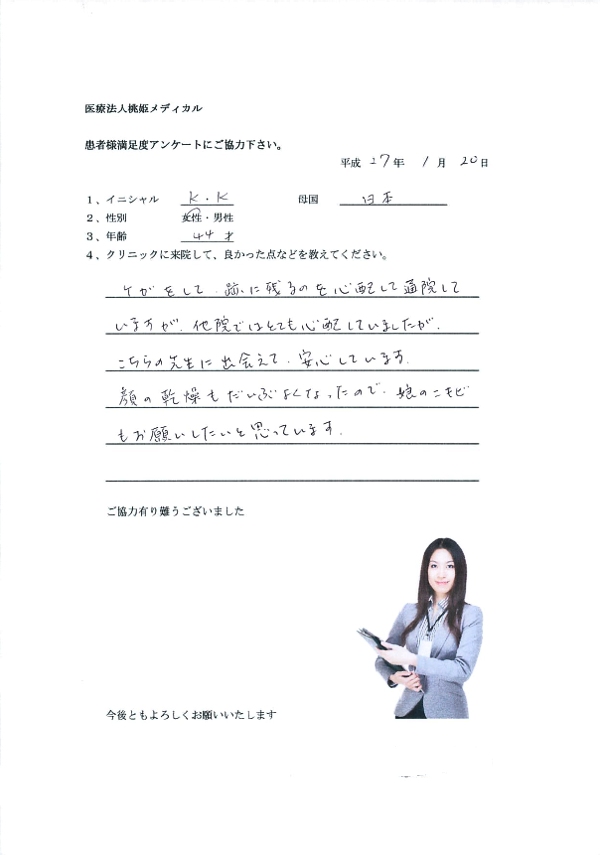 医療法人桃姫メディカル
患者様満足度アンケートにご協力下さい。
平成 27年 1月 20日
1、イニシャル K.K 母国 日本
2、性別 女性・男性
3、年齢 44才
4、クリニックに来院して、良かった点などを教えてください。
ケガをして、跡に残るのを心配して通院して
いますが、他院ではとても心配していましたが、
こちらの先生に出会えて、安心しています。
顔の乾燥もだいぶよくなったので、娘のニキビ
もお願いしたいと思っています。
ご協力有り難うございました
今後ともよろしくお願いいたします